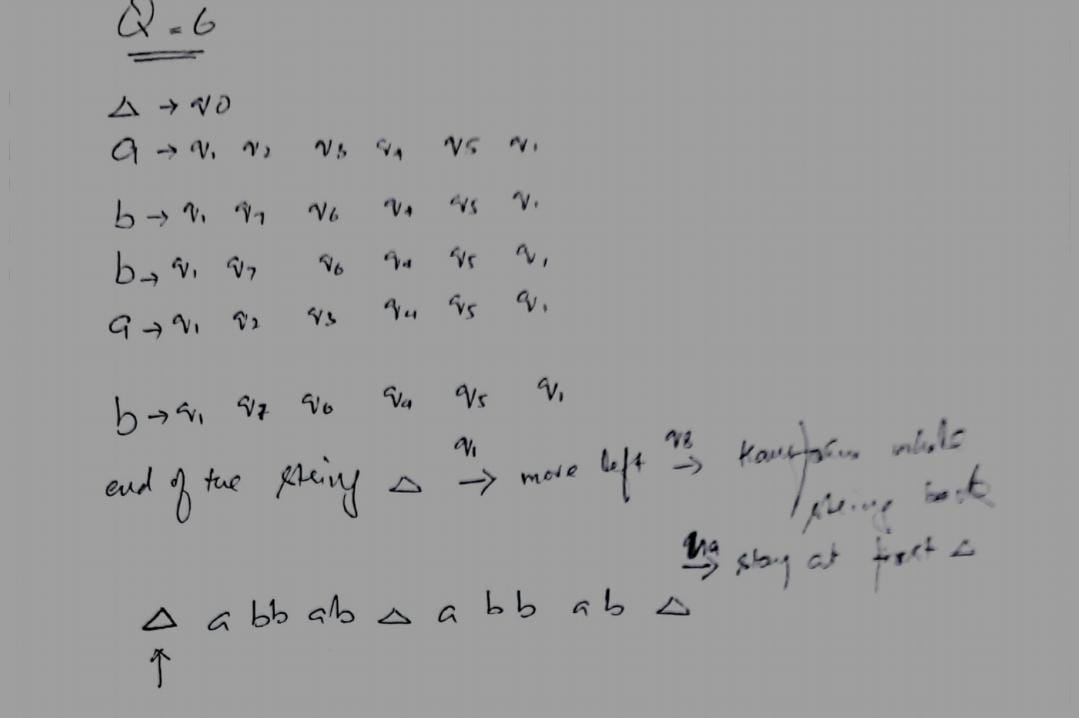 Q = 6
Δ → q0
a → q1 q2 q3 q4 q5 q1
b → q1 q7 q6 q4 q5 q1
b → q1 q7 q6 q4 q5 q1
a → q1 q2 q3 q4 q5 q1
b → q1 q7 q6 q4 q5 q1
q1 q8
end of the string Δ → move left → transform whole
string back
→ stay at first Δ
Δ a bb ab Δ a bb ab Δ
↑